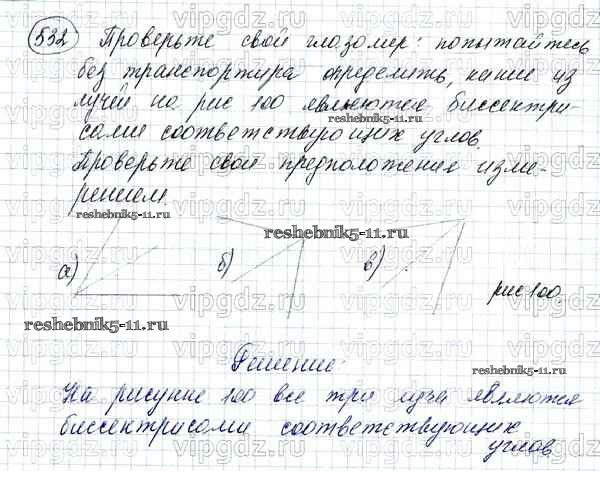 532 Проверьте свой глазомер: попытайтесь
без транспортира определить, какие из
лучей на рис 100 являются биссектри-
сами соответствующих углов.
Проверьте свои предположения изме-
рением.
reshebnik5-11.ru
reshebnik5-11.ru
reshebnik5-11.ru
а) б) в)
рис 100.
reshebnik5-11.ru
reshebnik5-11.ru
Решение:
На рисунке 100 все три луча являются
биссектрисами соответствующих
углов